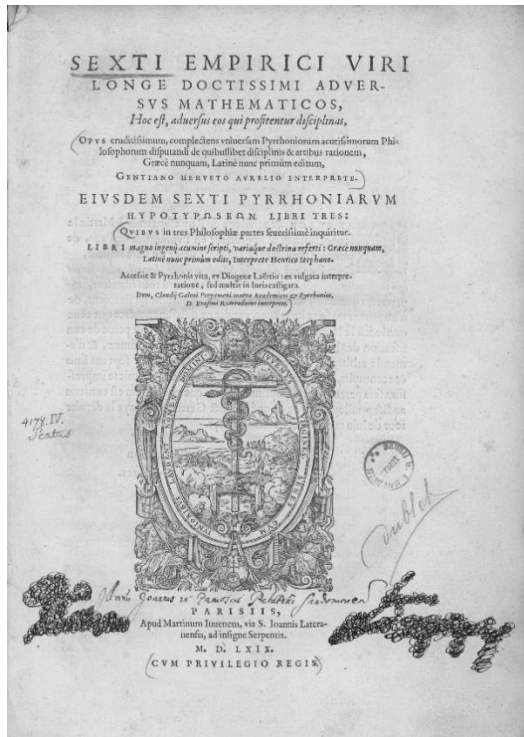 SEXTI EMPIRICI VIRI
LONGE DOCTISSIMI ADVER-
SVS MATHEMATICOS,
Hoc est, aduersus eos qui profitentur disciplinas,
OPVS eruditissimum, complectens vniuersam Pyrrhoniorum acutissimorum Phi-
losophorum disputandi de quibuslibet disciplinis & artibus rationem,
Græcè nunquam, Latinè nunc primùm editum,
GENTIANO HERVETO AVRELIO INTERPRETE.
EIVSDEM SEXTI PYRRHONIARVM
ΗΥΡΟΤΥΡΩΣΕΩΝ LIBRI TRES:
QVIBVS in tres Philosophiæ partes seuerissimè inquiritur.
LIBRI magno ingenij acumine scripti, variáque doctrina referti: Græce nunquam,
Latinè nunc primùm editi, Interprete Henrico Stephano.
Accessit & Pyrrhonis vita, ex Diogene Laërtio: ex vulgata interpre-
tatione, sed multis in locis castigata.
Item, Claudij Galeni Pergameni contra Academicos & Pyrrhonios,
D. Erasmo Roterodamo interprete.
4178.IV.
Sextus
dublet
Joannis
PARISIIS,
Apud Martinum Iuuenem, via S. Ioannis Latera-
nensis, ad insigne Serpentis.
M. D. LXIX.
CVM PRIVILEGIO REGIS.